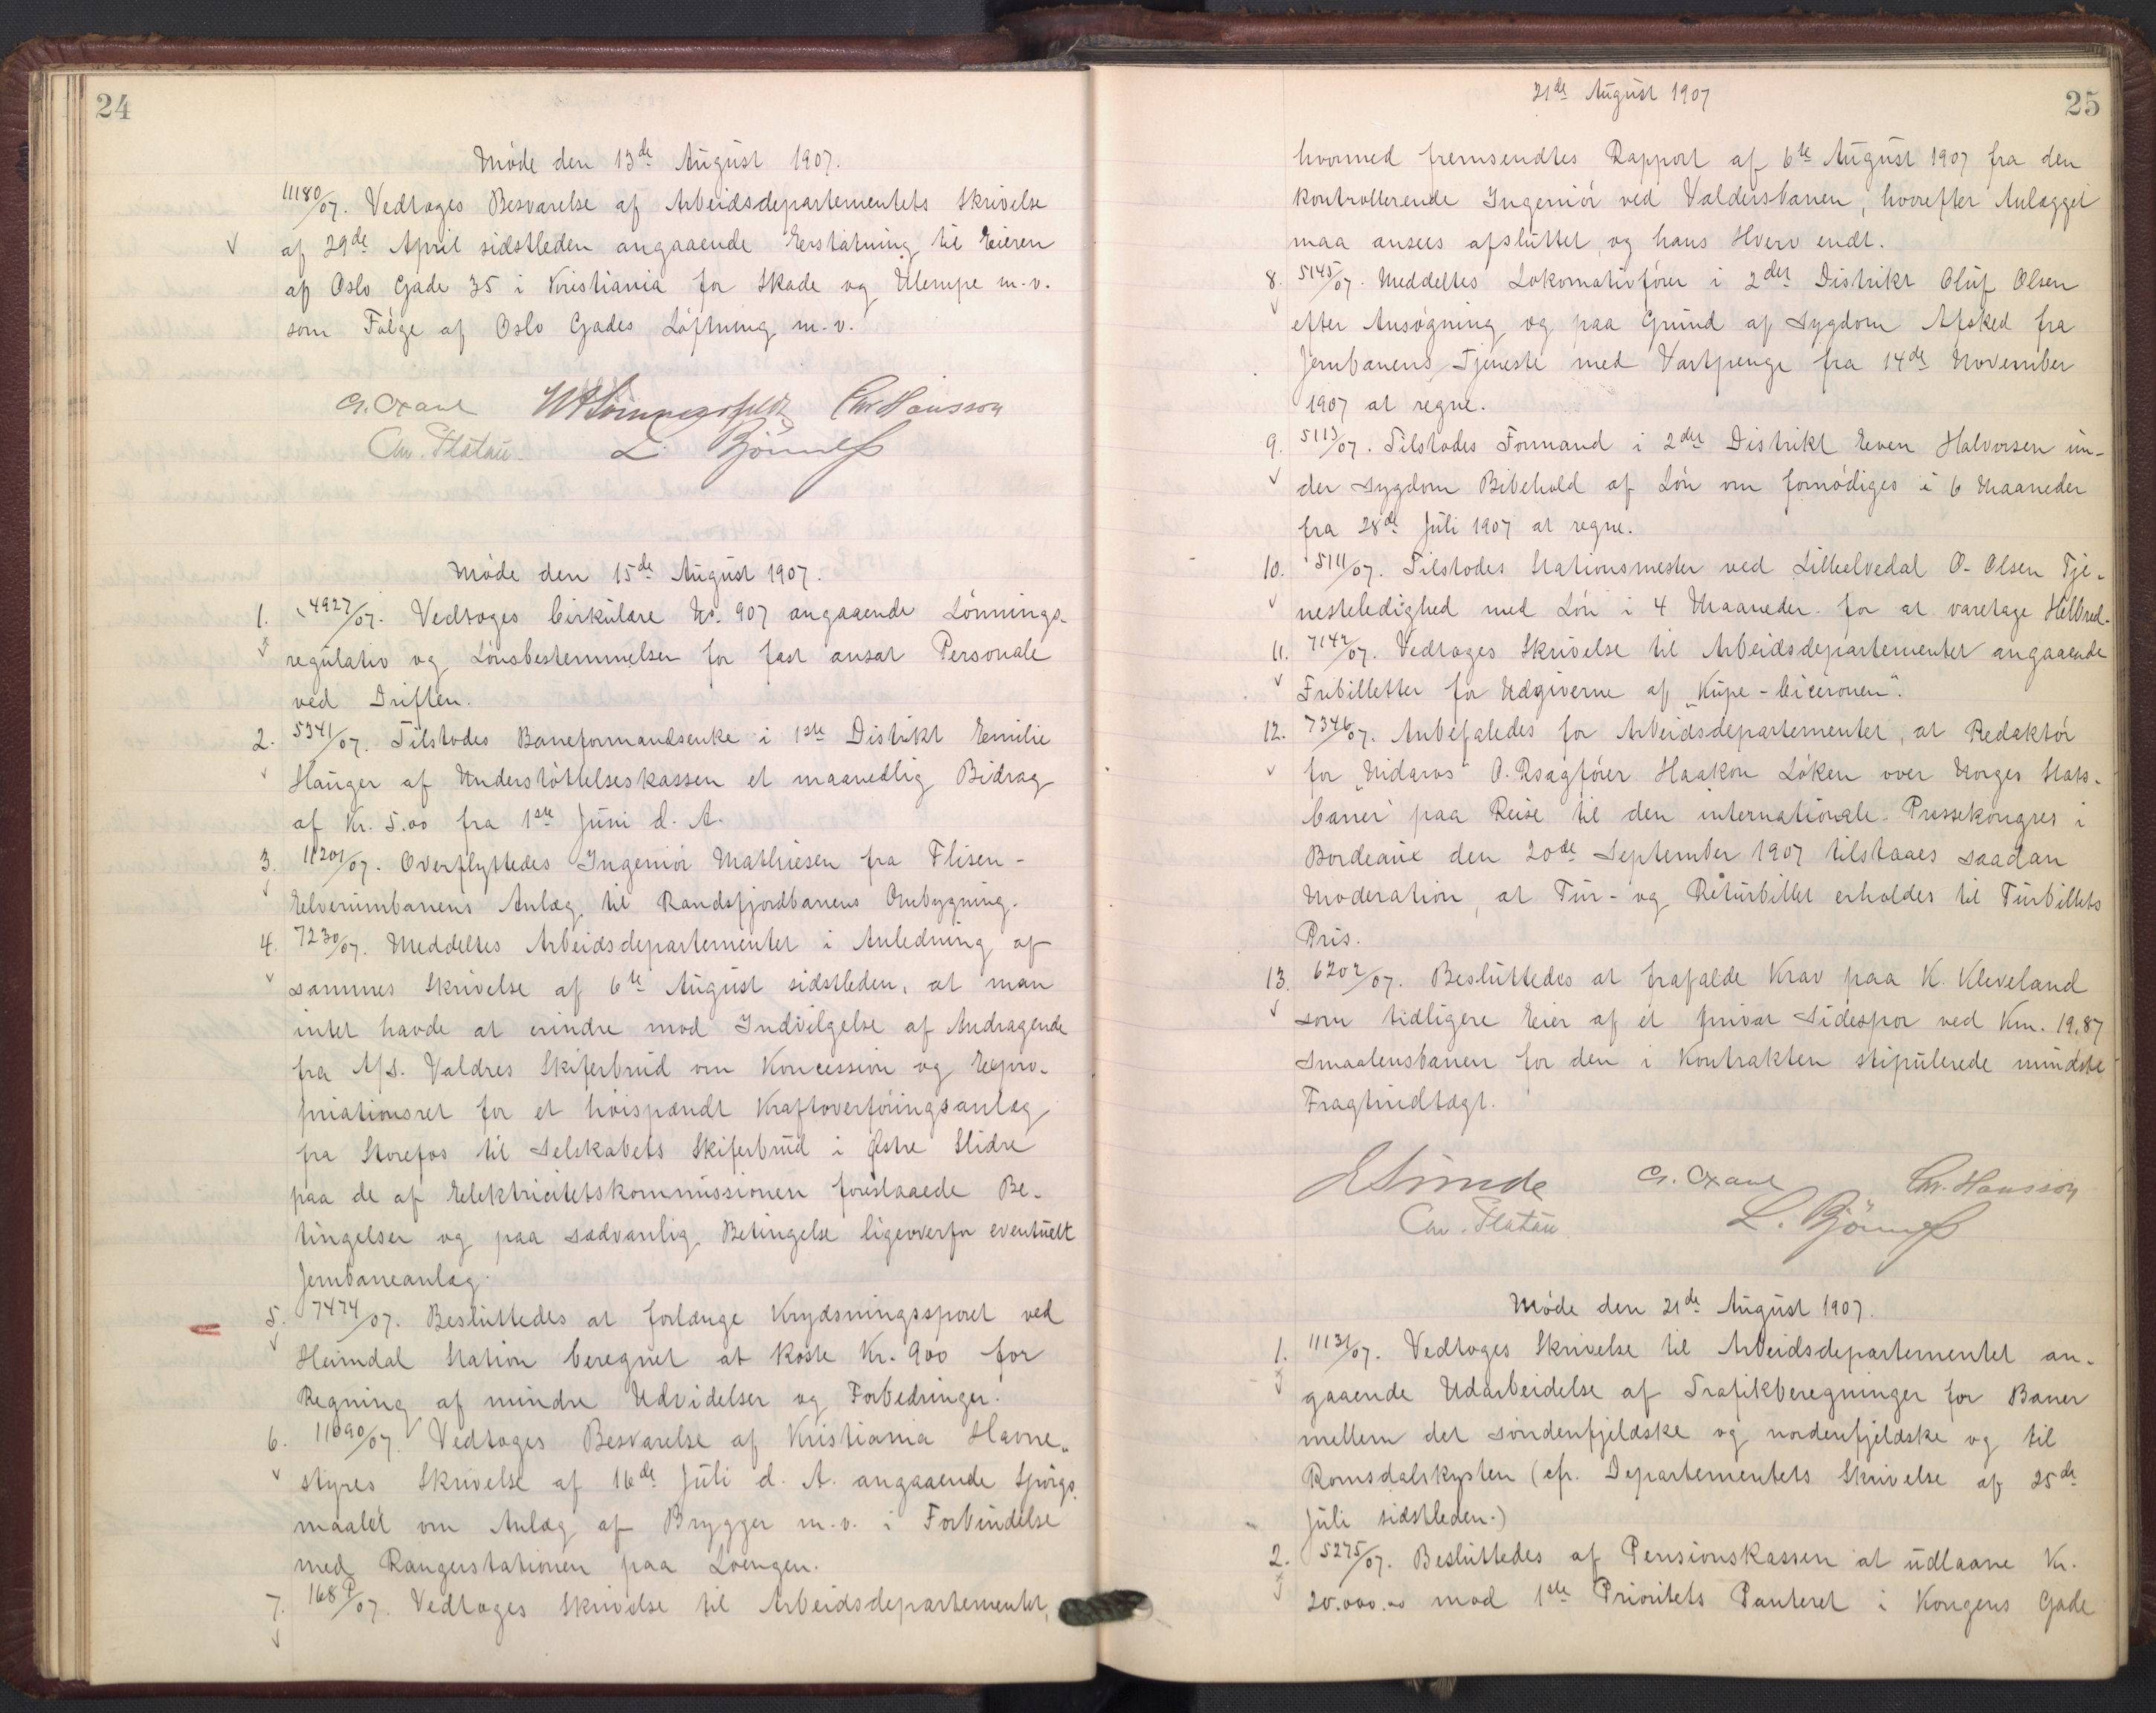 24
Møde den 13de August 1907.
11180/07. Vedtoges Besvarelse af Arbeidsdepartementets Skrivelse
af 29de April sidstleden angaaende Erstatning til Eieren
af Oslo Gade 35 i Kristiania for Skade og Ulempe m.v.
som Følge af Oslo Gades Løftning m.v.
Chr. Hansson
Chr. Platou L. Bjørness
Møde den 15de August 1907.
1. 4927/07. Vedtoges Cirkulære No. 907 angaaende Lønnings-
regulativ og Lønsbestemmelser for fast ansat Personale
ved Driften.
2. 5341/07. Tilstodes Baneformandsenke i 1ste Distrikt Emilie
Hauger af Understøttelseskassen et maanedlig Bidrag
af Kr. 5.00 fra 1ste Juni d. A.
3. 11201/07. Overflyttedes Ingeniør Mathiesen fra Flisen-
Elverumbanens Anlæg til Randsfjordbanens Ombygning.
4. 7230/07. Meddeltes Arbeidsdepartementet i Anledning af
sammes Skrivelse af 6te August sidstleden, at man
intet havde at erindre mod Indvilgelse af Andragende
fra A/S. Valdres Skiferbrud om Koncession og Expro-
priationsret for et høispændt Kraftoverføringsanlæg
fra Storefos til Selskabets Skiferbrud i Østre Slidre
paa de af Elektricitetskommissionen foreslaaede Be-
tingelser og paa sædvanlig Betingelse ligeoverfor eventuelt
Jernbaneanlæg.
5. 7474/07. Besluttedes at forlænge Krydsningssporet ved
Heimdal Station beregnet at koste Kr. 900 for
Regning af mindre Udvidelser og Forbedringer.
6. 11090/07. Vedtoges Besvarelse af Kristiania Havne-
styres Skrivelse af 16de Juli d. A. angaaende Spørgs-
maalet om Anlæg af Brygger m.v. i Forbindelse
med Rangerstationen paa Loengen.
7. 168P/07. Vedtoges Skrivelse til Arbeidsdepartementet,
21de August 1907
25
hvormed fremsendtes Rapport af 6te August 1907 fra den
kontrollerende Ingeniør ved Valdersbanen, hvorefter Anlægget
maa ansees afsluttet og hans Hverv endt.
8. 5145/07. Meddeltes Lokomotivfører i 2det Distrikt Oluf Olsen
efter Ansøgning og paa Grund af Sygdom Afsked fra
Jernbanens Tjeneste med Vartpenge fra 14de November
1907 at regne.
9. 5113/07. Tilstodes Formand i 2det Distrikt Even Halvorsen un-
der Sygdom Bibehold af Løn om fornødiges i 6 Maaneder
fra 28de Juli 1907 at regne.
10. 5111/07. Tilstodes Stationsmester ved Lilleelvedal O. Olsen Tje-
nesteledighed med Løn i 4 Maaneder for at varetage Helbred.
11. 7142/07. Vedtoges Skrivelse til Arbeidsdepartementet angaaende
Fribilletter for Udgiverne af „Kupe-Ciceronen".
12. 7346/07. Anbefaledes for Arbeidsdepartementet, at Redaktør
for „Nidaros" O. Rsagfører Haakon Løken over Norges Stats-
baner paa Reise til den internationale Pressekongres i
Bordeaux den 20de September 1907 tilstaaes saadan
Moderation, at Tur- og Returbillet erholdes til Turbillets
Pris.
13. 6202/07. Besluttedes at frafalde Krav paa K. Kleveland
som tidligere Eier af et privat Sidespor ved Km. 19,87
Smaalensbanen for den i Kontrakten stipulerede mindste
Fragtindtægt.
Chr. Hansson
Chr. Platou L. Bjørness
Møde den 21de August 1907.
1. 11131/07. Vedtoges Skrivelse til Arbeidsdepartementet an-
gaaende Udarbeidelse af Trafikberegninger for Baner
mellem det søndenfjeldske og nordenfjeldske og til
Romsdalskysten (cfr. Departementets Skrivelse af 25de
Juli sidstleden.)
2. 5275/07. Besluttedes af Pensionskassen at udlaane Kr.
20.000.00 mod 1ste Prioritets Panteret i Kongens Gade